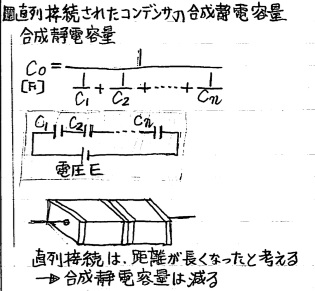 圖直列接続されたコンデンサの合成静電容量
合成静電容量
C₀ = 1 / (1/C₁ + 1/C₂ + ‥‥‥ + 1/Cn)
[F]
C₁ C₂ ------ Cn
電圧E
直列接続は、距離が長くなったと考える
→ 合成静電容量は減る